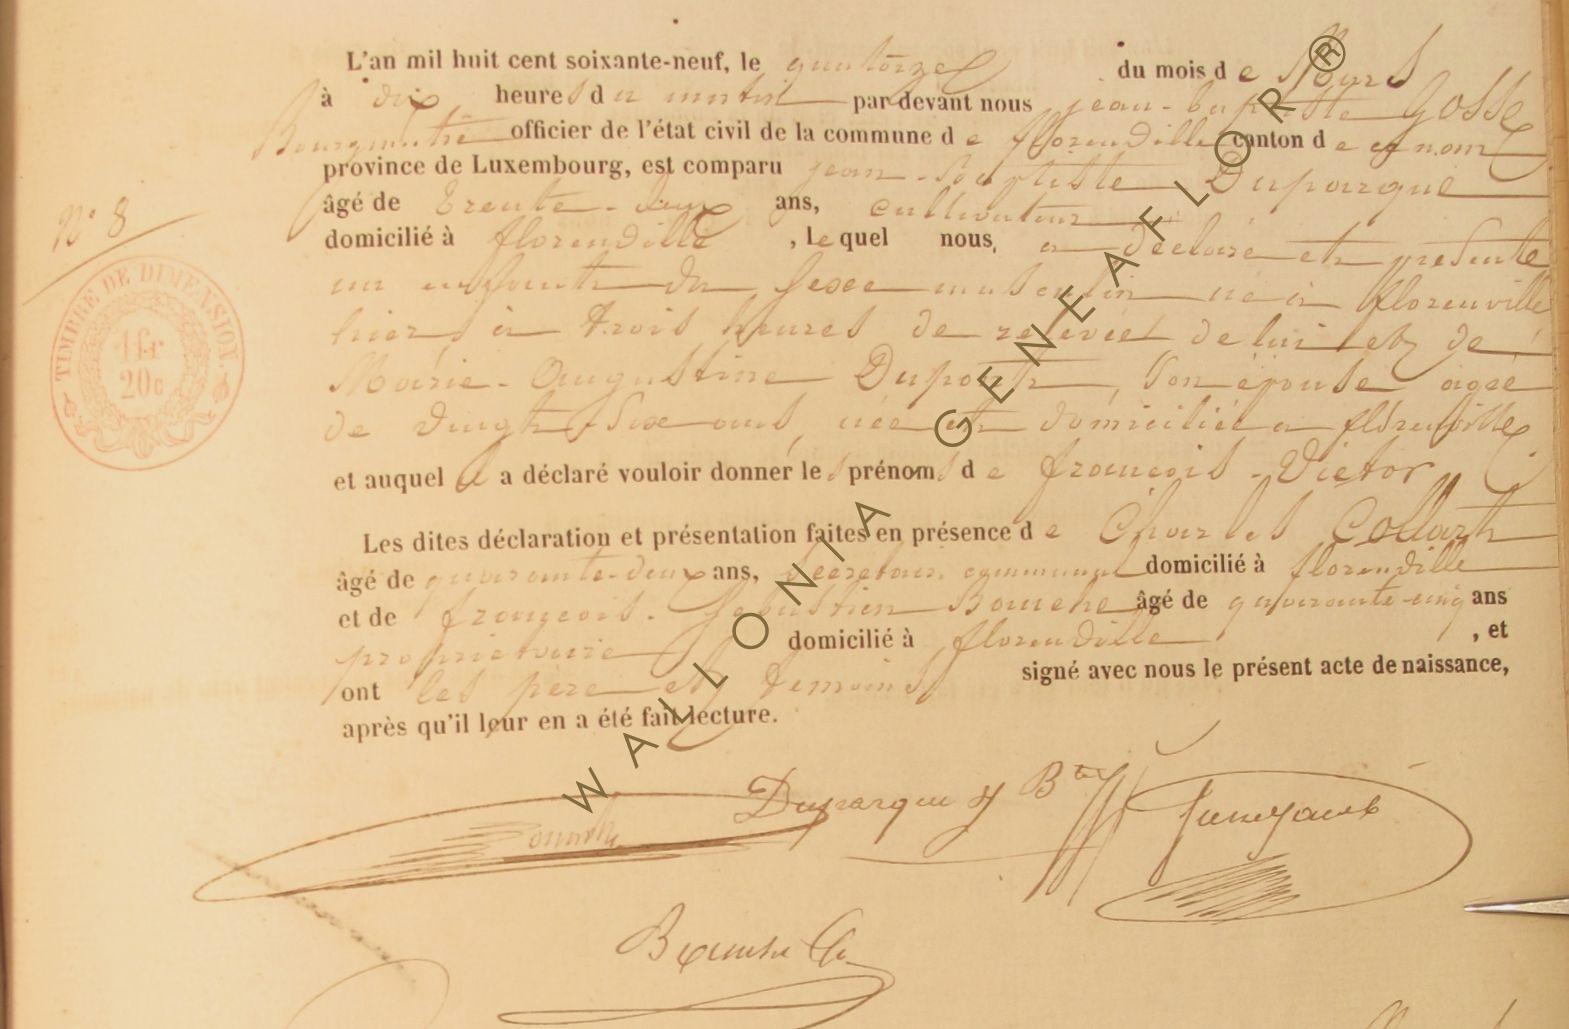 L'an mil huit cent soixante-neuf, le quatorze du mois de Mars
à dix heures du matin par devant nous jean-baptiste Gosse
Bourgmestre officier de l'état civil de la commune de florenville canton de ce nom
province de Luxembourg, est comparu jean-Baptiste Duparque
âgé de trente-deux ans, cultivateur
N° 8
domicilié à florenville, lequel nous, a déclaré et présenté
un enfant du sexe masculin né à florenville
hier à trois heures de relevée de lui et de
Marie-Augustine Dupont, son épouse agée
de vingt six ans, née et domiciliée à florenville
et auquel il a déclaré vouloir donner les prénoms de françois-Victor
Les dites déclaration et présentation faites en présence de Charles Collart
âgé de quarante-deux ans, secretaire communal domicilié à florenville
et de françois-Sebastien Bouche âgé de quarante-cinq ans
propriétaire domicilié à florenville, et
ont les père et témoins signé avec nous le présent acte de naissance,
après qu'il leur en a été fait lecture.
TIMBRE DE DIMENSION.
1 fr
20c
Duparque J Bte
WALLONIA GENEAFLOR®